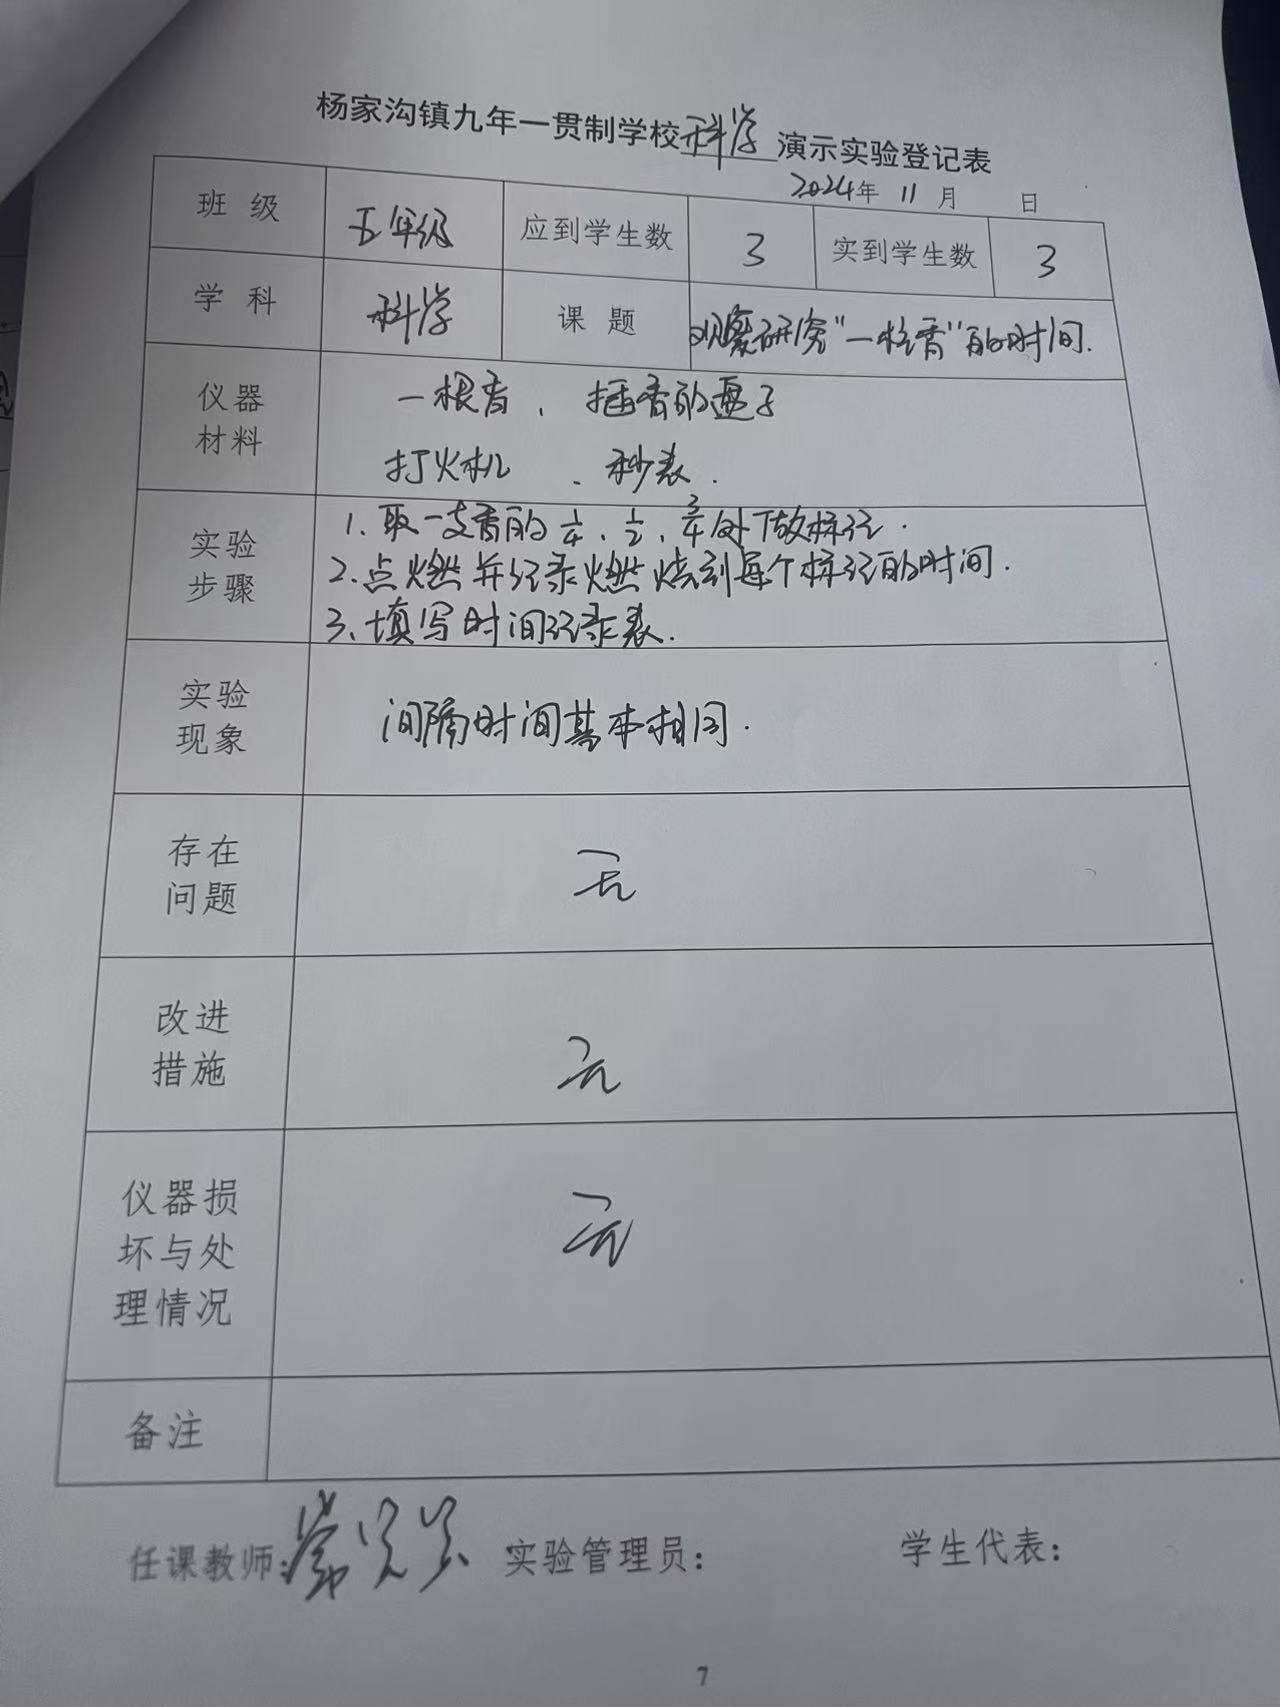 杨家沟镇九年一贯制学校科学演示实验登记表
2024年 11 月 日
班级 五年级 应到学生数 3 实到学生数 3
学科 科学 课题 观察研究“一柱香”的时间.
仪器材料
一根香、插香的盘子
打火机、秒表.
实验步骤
1. 取一支香的 1/4、1/2、3/4 处下做标记.
2. 点燃并记录燃烧到每个标记的时间.
3、填写时间记录表.
实验现象
间隔时间基本相同.
存在问题
无
改进措施
无
仪器损坏与处理情况
无
备注
任课教师: 实验管理员: 学生代表:
7